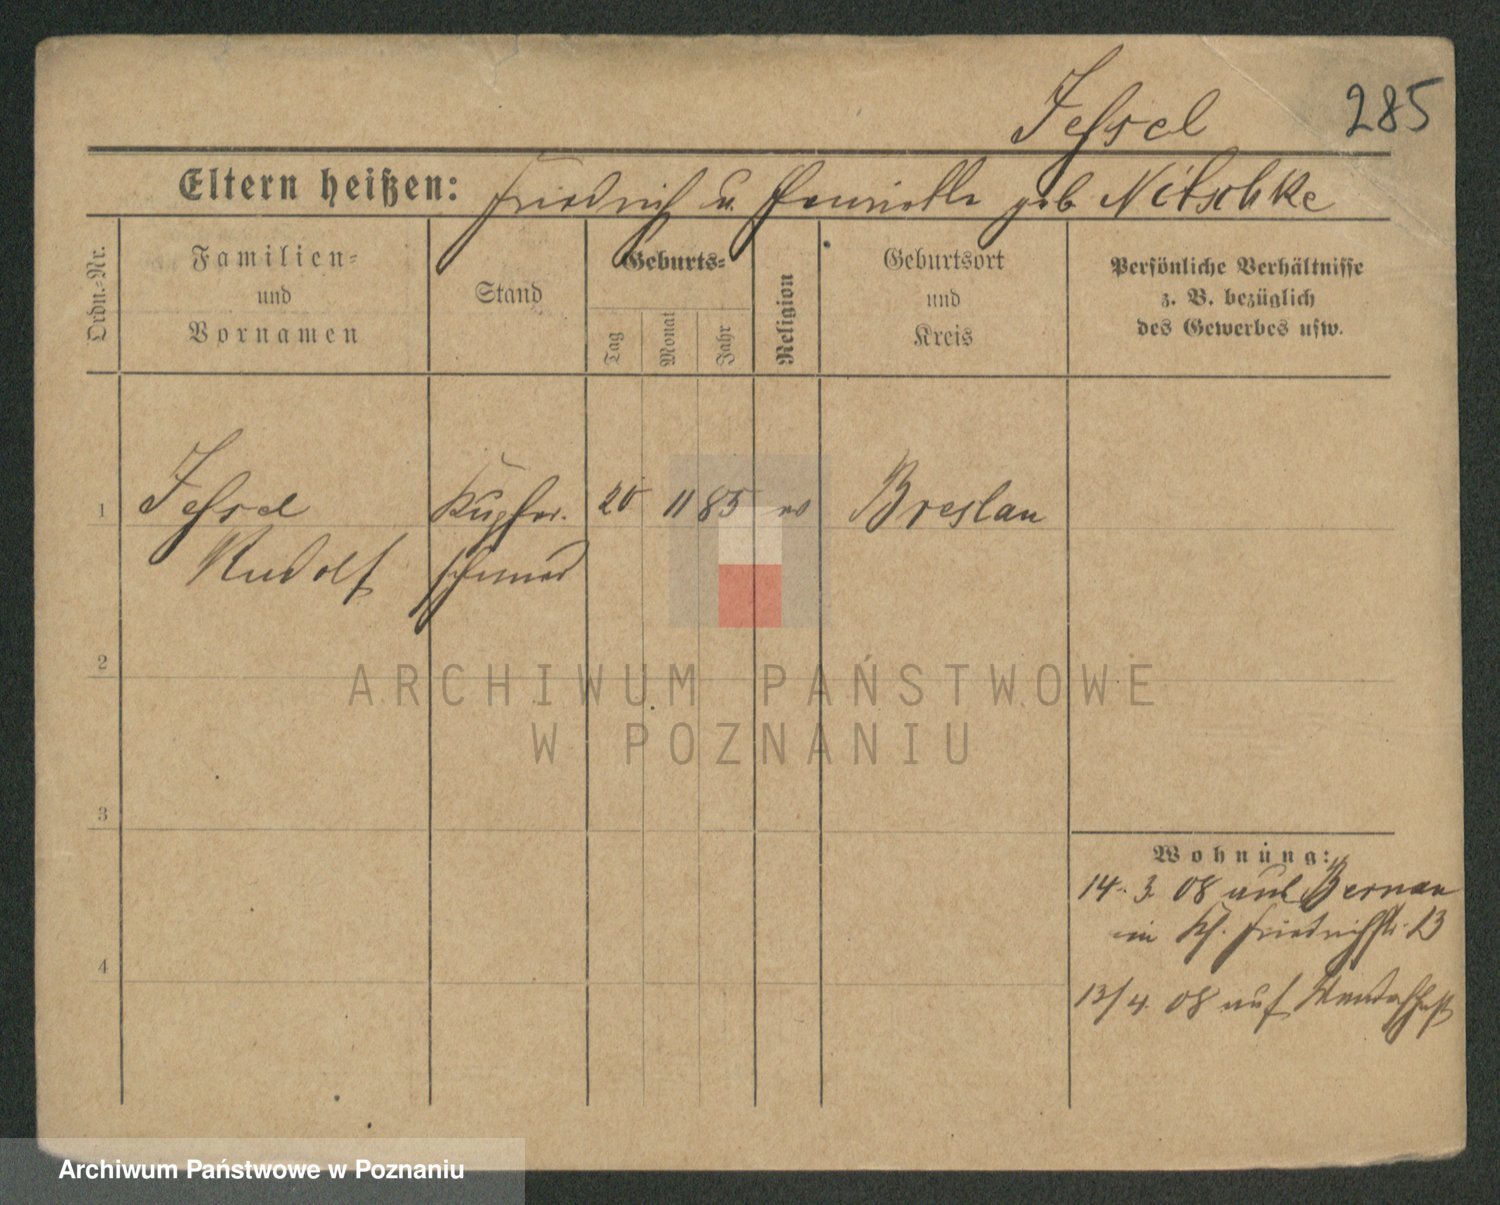 Jessel
285
Eltern heißen: Friedrich u. Henriette geb Nitschke
Ordn.-Nr.
Familien-
und
Vornamen
Stand
Geburts-
Tag
Monat
Jahr
Religion
Geburtsort
und
Kreis
Persönliche Verhältnisse
z. B. bezüglich
des Gewerbes usw.
1
Jessel
Rudolf
Kupfer-
schmied
20 11 85 ev
Breslau
2
ARCHIWUM PAŃSTWOWE
W POZNANIU
3
Wohnung:
14. 3. 08 aus Bernau
in Kl. Friedrichstr. 13
4
13/4. 08 auf Wanderschaft
Archiwum Państwowe w Poznaniu